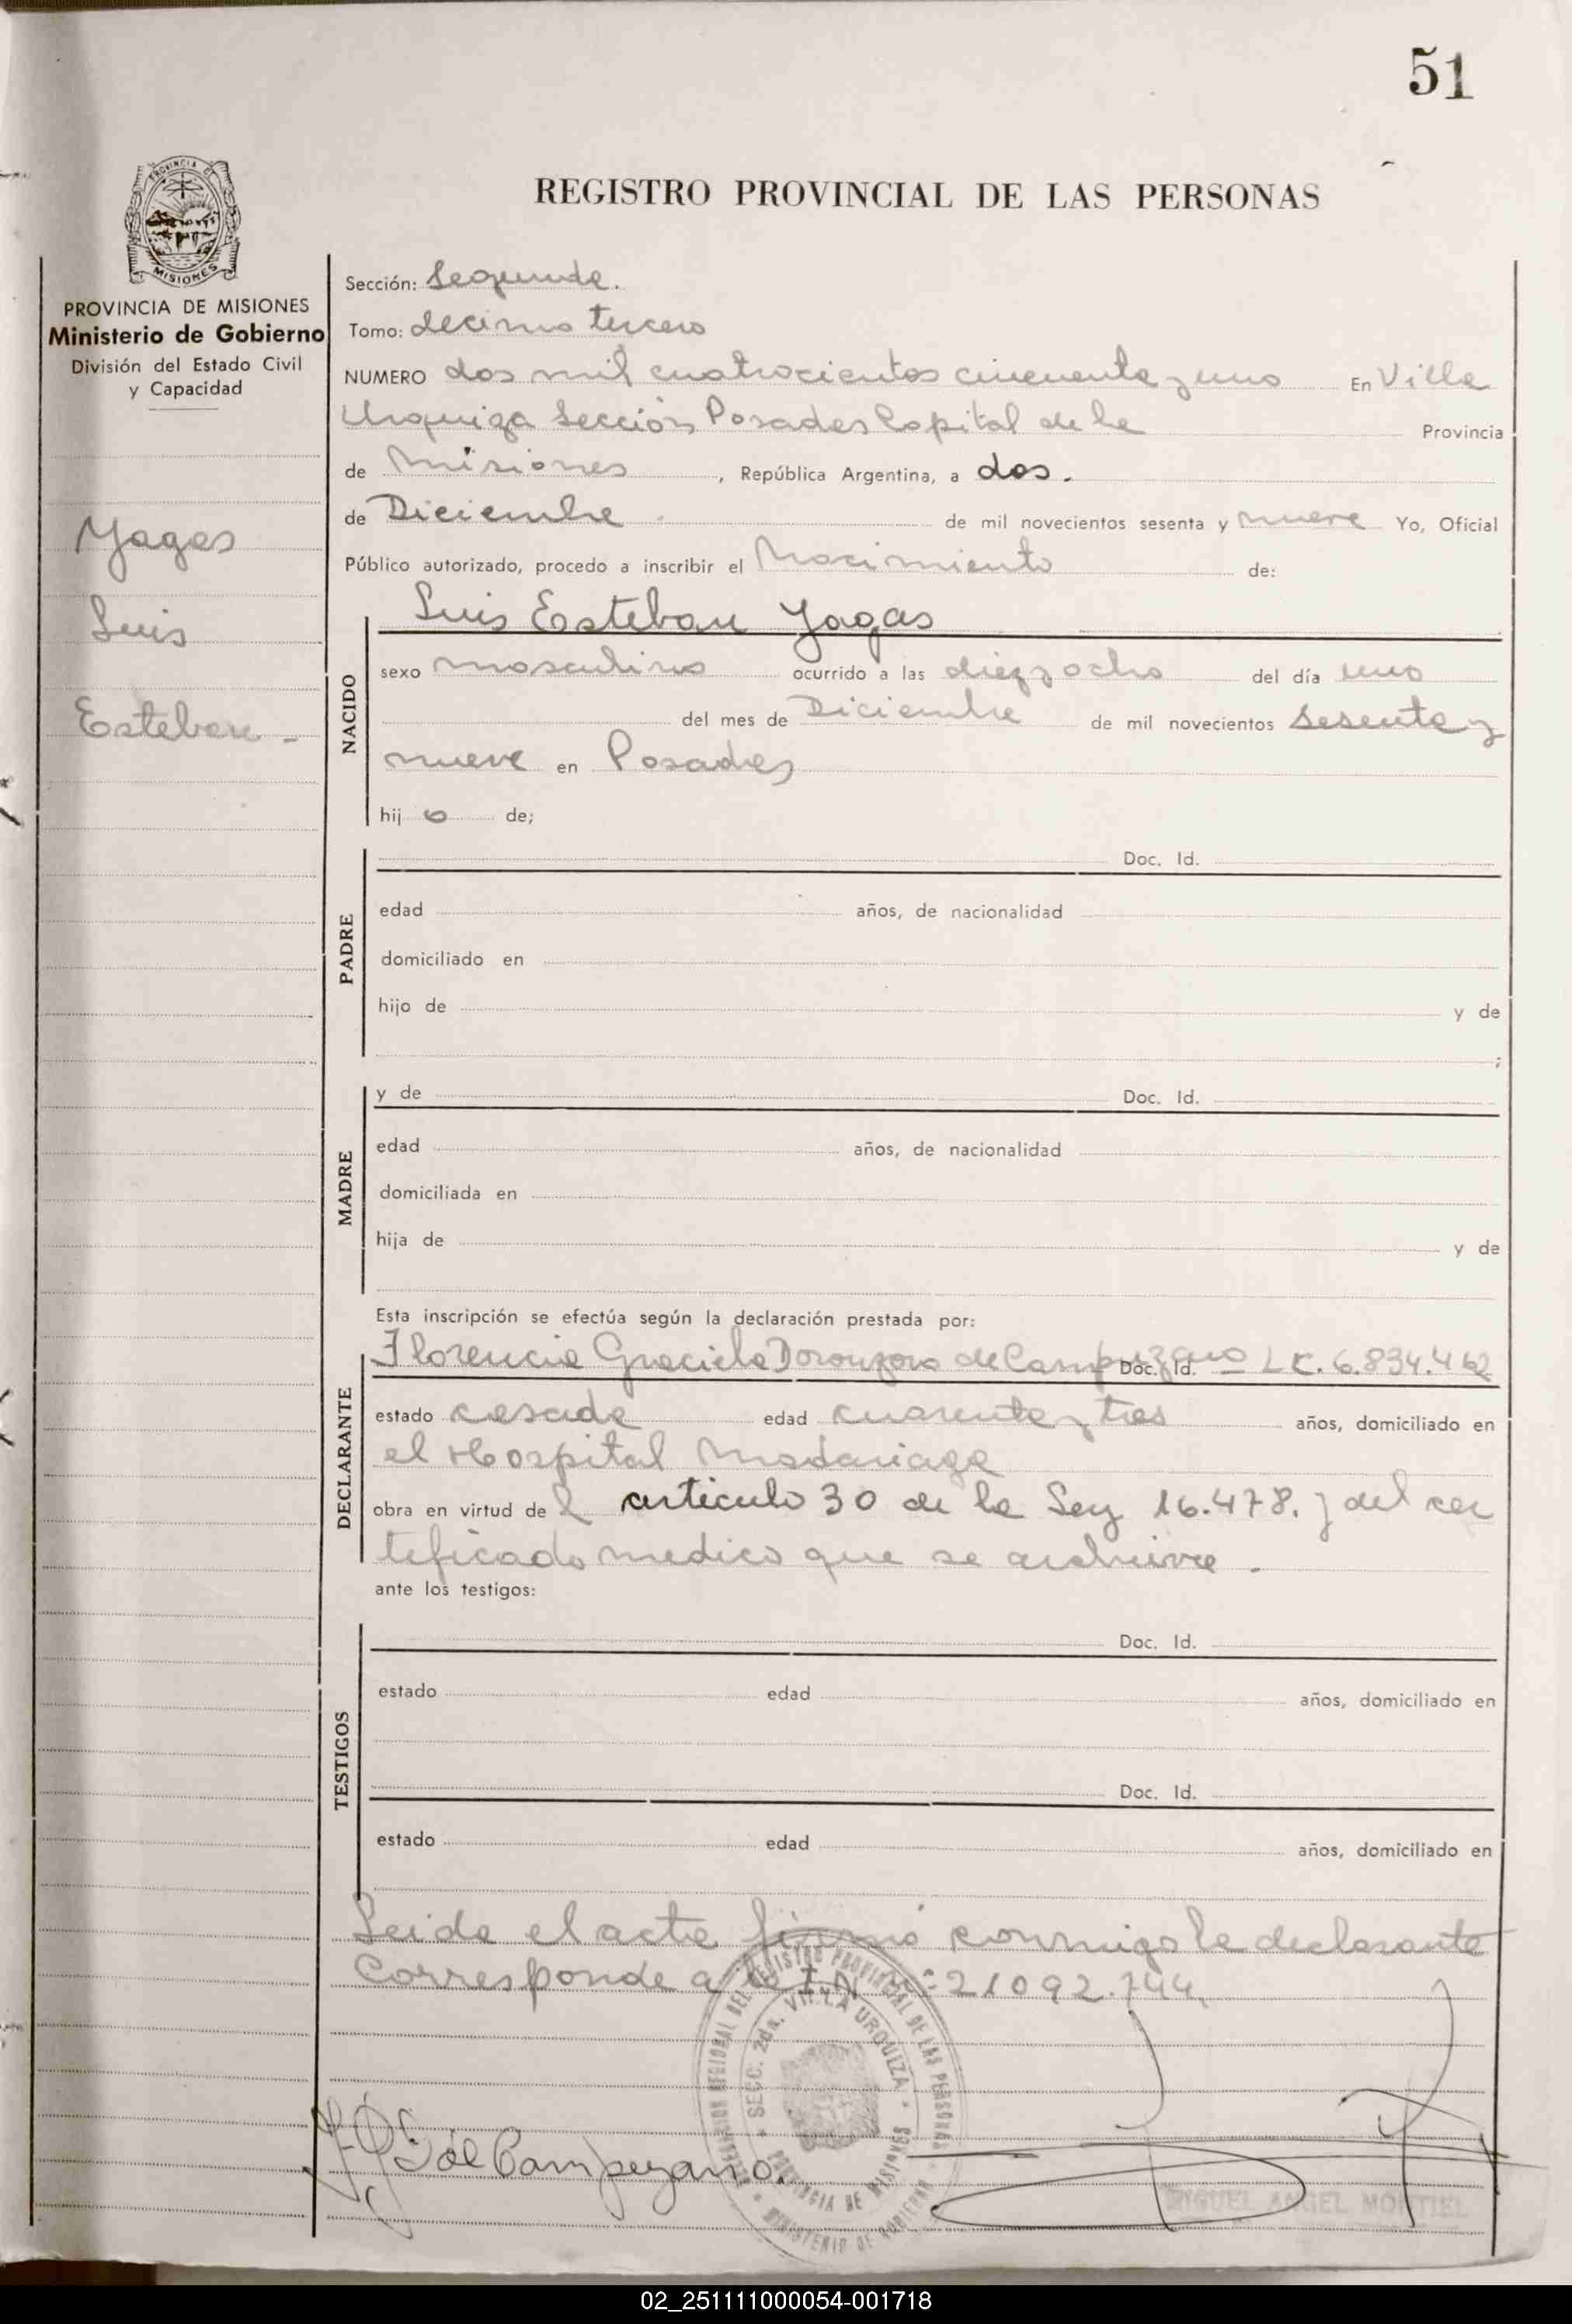 51
REGISTRO PROVINCIAL DE LAS PERSONAS
PROVINCIA DE MISIONES
Ministerio de Gobierno
División del Estado Civil
y Capacidad
Yagas
Luis
Esteban -
Sección: Segunda.
Tomo: decimo tercero
NUMERO dos mil cuatrocientos cincuenta y uno En Villa
Urquiza Sección Posadas Capital de la Provincia
de Misiones, República Argentina, a dos.
de Diciembre. de mil novecientos sesenta y nueve Yo, Oficial
Público autorizado, procedo a inscribir el Nacimiento de:
Luis Esteban Yagas
NACIDO
sexo masculino ocurrido a las diez y ocho del día uno
del mes de Diciembre de mil novecientos sesenta y
nueve en Posadas
hij o de;
PADRE
Doc. Id.
edad años, de nacionalidad
domiciliado en
hijo de y de
;
MADRE
y de Doc. Id.
edad años, de nacionalidad
domiciliada en
hija de y de
Esta inscripción se efectúa según la declaración prestada por:
DECLARANTE
Florencia Graciela de Campuzano Doc. Id. L C. 6.834.462
estado casada edad cuarenta y tres años, domiciliado en
el Hospital Madariaga
obra en virtud de l artículo 30 de la Ley 16.478. y del cer
tificado medico que se archiva.
ante los testigos:
TESTIGOS
Doc. Id.
estado edad años, domiciliado en
Doc. Id.
estado edad años, domiciliado en
Leida el acta firmó conmigo la declarante
Corresponde a 21092.744.
DELEGACION REGIONAL DEL REGISTRO PROVINCIAL DE LAS PERSONAS
MINISTERIO DE GOBIERNO
SECC. 2da. VILLA URQUIZA
PROVINCIA DE MISIONES
de Campuzano.
MIGUEL ANGEL MONTIEL
02_251111000054-001718